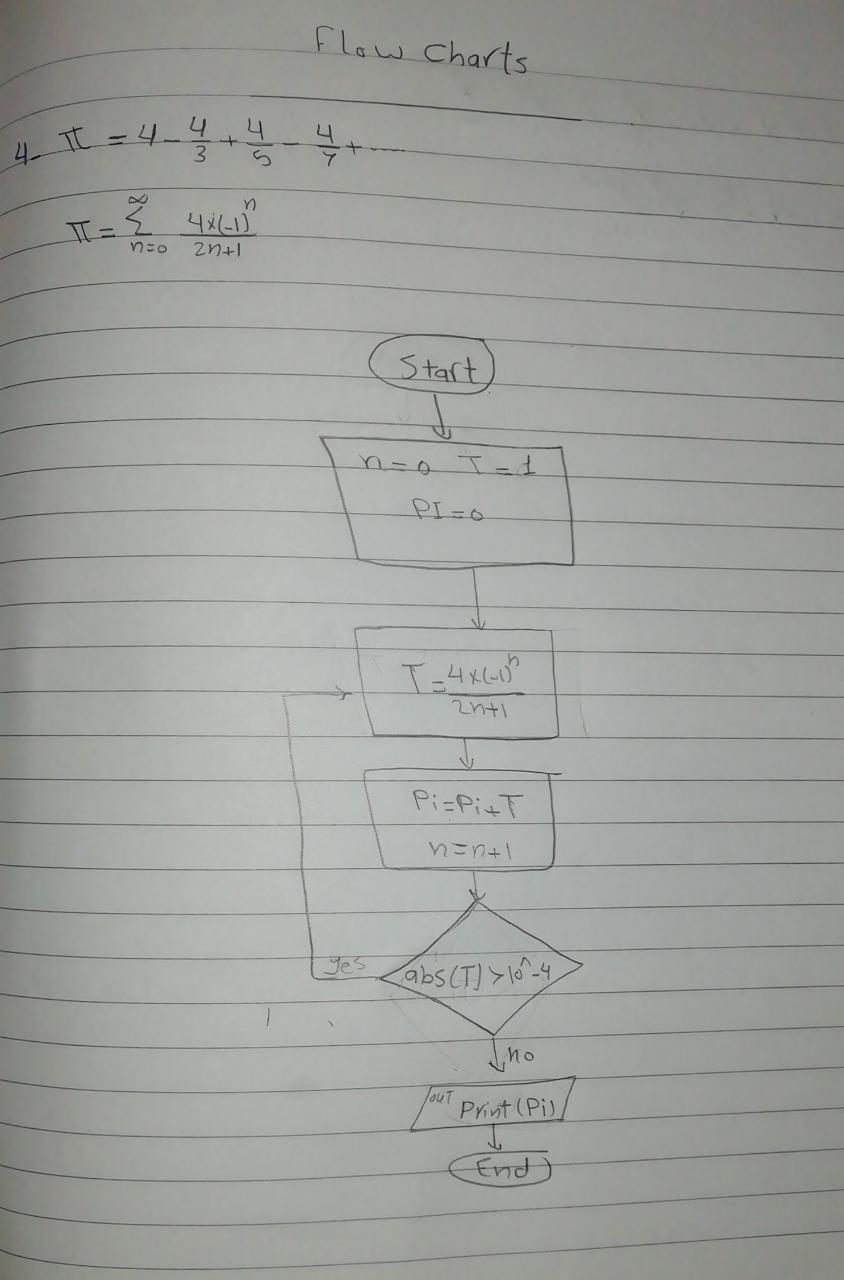 Flow Charts
4- π = 4 - 4/3 + 4/5 - 4/7 + ......
π = ∞ Σ n=0 4×(-1)^n / 2n+1
Start
n=0 T=1
PI=0
T = 4×(-1)^n / 2n+1
Pi=Pi+T
n=n+1
abs(T)>10^-4
yes
no
out Print(Pi)
End